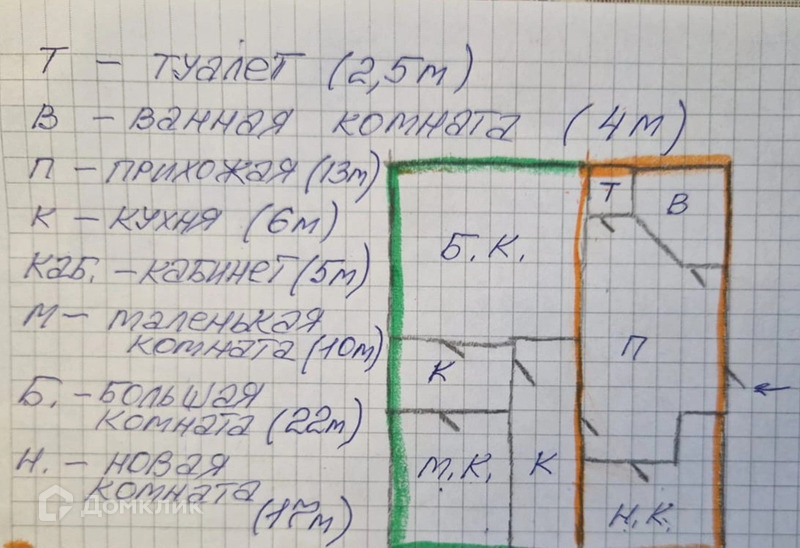 Т – ТУАЛЕТ (2,5м)
В – ВАННАЯ КОМНАТА (4м)
П – ПРИХОЖАЯ (13м)
К – КУХНЯ (6м)
КАБ. – КАБИНЕТ (5м)
М – МАЛЕНЬКАЯ
КОМНАТА (10м)
Б. – БОЛЬШАЯ
КОМНАТА (22м)
Н. – НОВАЯ
КОМНАТА
(17м)
Т
В
Б. К.
П
К
М. К.
К
Н. К.
Домклик